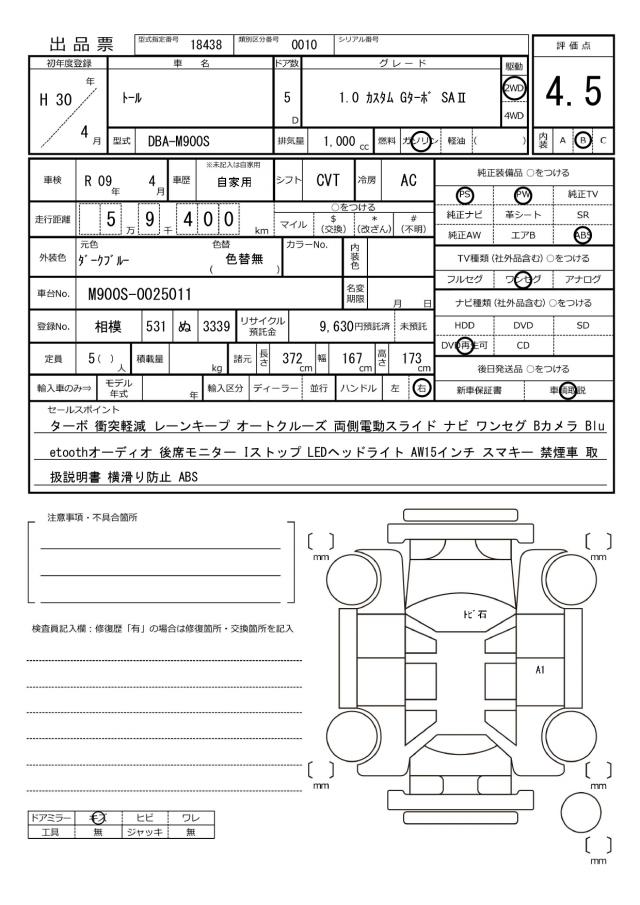 出品票 型式指定番号 18438 類別区分番号 0010 シリアル番号
評価点
4.5
初年度登録 車名 ドア数 グレード 駆動
H 30 年 4 月
トール
5 D
1.0 カスタム Gターボ SAⅡ
2WD
4WD
型式 DBA-M900S 排気量 1,000 cc 燃料 ガソリン 軽油 ( )
内装 A B C
車検 R 09 年 4 月 車歴 ※未記入は自家用 自家用 シフト CVT 冷房 AC
純正装備品 ○をつける
PS PW 純正TV
純正ナビ 革シート SR
純正AW エアB ABS
走行距離 5 万 9 千 4 0 0 km
○をつける
マイル $(交換) *(改ざん) #(不明)
外装色 元色 ダークブルー 色替 ( 色替無 ) カラーNo. 内装色
TV種類(社外品含む)○をつける
フルセグ ワンセグ アナログ
車台No. M900S-0025011 名変期限 月 日
ナビ種類(社外品含む)○をつける
HDD DVD SD
DVD再生可 CD
登録No. 相模 531 ぬ 3339 リサイクル預託金 9,630円預託済 未預託
定員 5( ) 人 積載量 kg 諸元 長さ 372 cm 幅 167 cm 高さ 173 cm
後日発送品 ○をつける
新車保証書 車輌取説
輸入車のみ⇒ モデル年式 年 輸入区分 ディーラー 並行 ハンドル 左 右
セールスポイント
ターボ 衝突軽減 レーンキープ オートクルーズ 両側電動スライド ナビ ワンセグ Bカメラ Blu
etoothオーディオ 後席モニター Iストップ LEDヘッドライト AW15インチ スマキー 禁煙車 取
扱説明書 横滑り防止 ABS
注意事項・不具合箇所
検査員記入欄:修復歴「有」の場合は修復箇所・交換箇所を記入
mm
mm
トビ石
A1
mm
mm
mm
ドアミラー キズ ヒビ ワレ
工具 無 ジャッキ 無